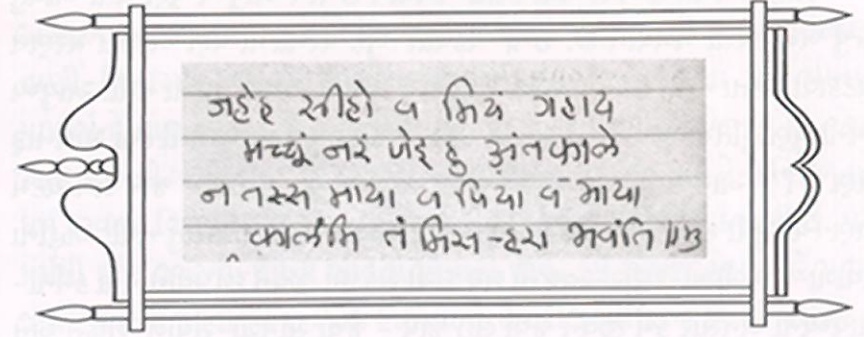 जहेह सीहो व मिय गहाय
मच्चूं नर णेइ हु अंतकाले
न तस्स माया व पिया व भाया
कालंमि तं मिस-हरा भवंति ॥